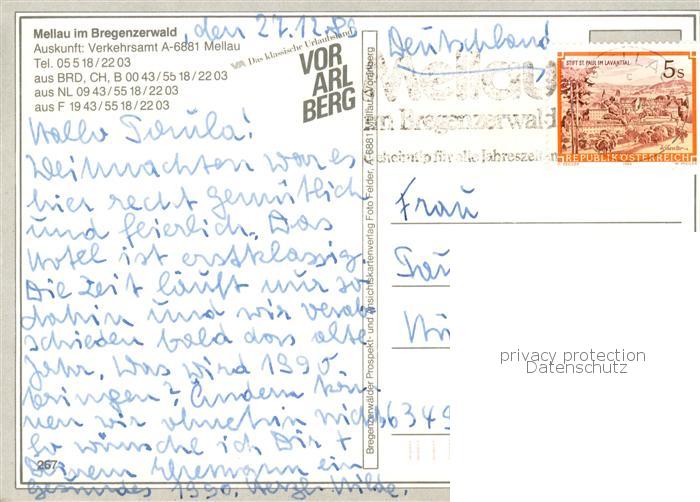 Mellau im Bregenzerwald
Auskunft: Verkehrsamt A-6881 Mellau
Tel. 05518/2203
aus BRD, CH, B 0043/5518/2203
aus NL 0943/5518/2203
aus F 1943/5518/2203
VA Das klassische Urlaubsland
VOR
ARL
BERG
, den 27.12.89
Hallo Paula!
Weihnachten war es
hier recht gemütlich
und feierlich. Das
Hotel ist erstklassig.
Die Zeit läuft nur so
dahin und wir verab
schieden bald das alte
Jahr. Was wird 1990
bringen? Ändern kön
nen wir ohnehin nichts
So wünsche ich Dir +
Deinem Ehemann ein
gesundes 1990. Herzl. Hilde.
267
Bregenzerwälder Prospekt- und Ansichtskartenverlag Foto Felder, A-6881 Mellau/Vorarlberg
Deutschland
Mellau
im Bregenzerwald
für alle Jahreszeiten
STIFT ST. PAUL IM LAVANTTAL
5s
REPUBLIK ÖSTERREICH
Frau
6349
privacy protection
Datenschutz